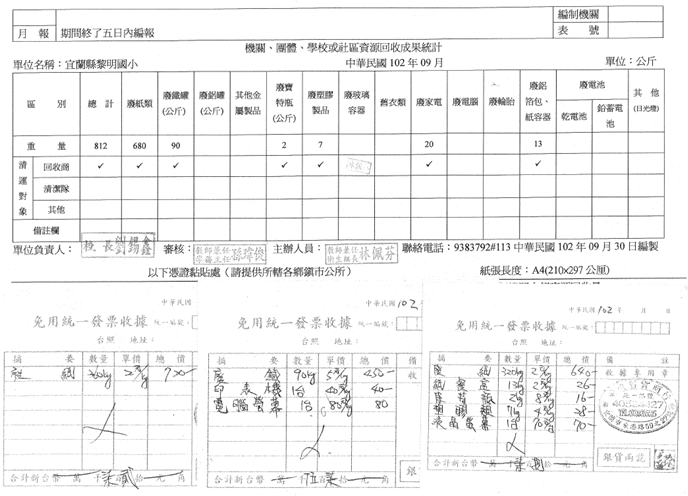 編制機關
月 報 期間終了五日內編報 表 號
機關、團體、學校或社區資源回收成果統計
單位名稱：宜蘭縣黎明國小 中華民國 102 年 09 月 單位：公斤
區 別 總 計 廢紙類 廢鐵罐(公斤) 廢鋁罐(公斤) 其他金屬製品 廢寶特瓶(公斤) 廢塑膠製品 廢玻璃容器 舊衣類 廢家電 廢電腦 廢輪胎 廢鋁箔包、紙容器 廢電池 乾電池 鉛蓄電池 其 他 (日光燈)
重 量 812 680 90 2 7 20 13
清運對象 回收商 ✓ ✓ ✓ ✓ ✓ ✓ ✓
清潔隊
其他
備註欄
單位負責人： 校長劉錫鑫 審核： 教師兼任 主辦人員： 教師兼任衛生組長 林佩芬 聯絡電話：9383792#113 中華民國 102 年 09 月 30 日編製
以下憑證黏貼處（請提供所轄各鄉鎮市公所） 紙張長度：A4(210x297 公厘)
中華民國
免用統一發票收據 統一編號：
台照 地址：
摘 要 數量 單價 總 價
廢 紙 360kg 2元/kg 720-
合計新台幣 萬 仟 柒 佰 貳 拾 元 角
中華民國 102
免用統一發票收據 統一編號：
台照 地址：
摘 要 數量 單價 總 價
廢 鐵 90kg 5元/kg 450-
印表機 1台 40-
電腦螢幕 1台 80
收
合計新台幣 萬 仟 伍 佰 柒 拾 元 角
銀
中華民國 102 年 月 日
免用統一發票收據 統一編號：
台照 地址：
摘 要 數量 單價 總 價 備 註
廢 紙 320kg 2元/kg 640- 收據專用章
紙 13kg 2元/kg 26-
2kg 8元/kg 16-
塑膠類 7kg 4元/kg 28-
液晶螢幕 1台 70-
銀貨兩訖
合計新台幣 萬 仟 柒 佰 捌 拾 元 角